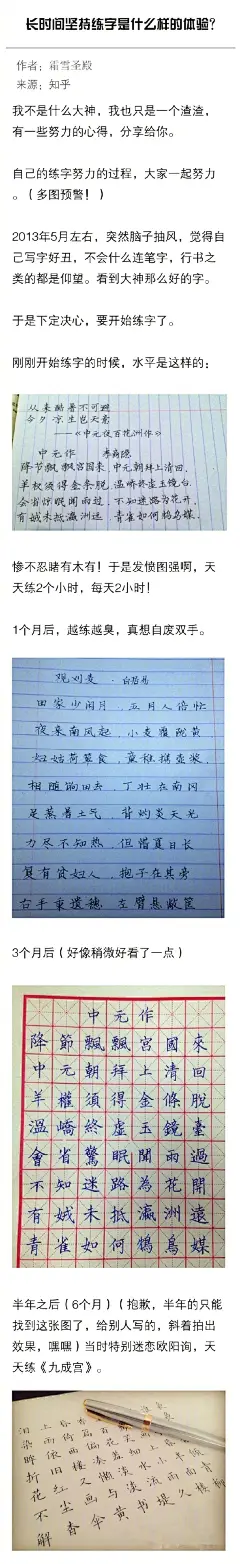 长时间坚持练字是什么样的体验?
作者：霜雪圣殿
来源：知乎
我不是什么大神，我也只是一个渣渣，
有一些努力的心得，分享给你。
自己的练字努力的过程，大家一起努力
。（多图预警！）
2013年5月左右，突然脑子抽风，觉得自
己写字好丑，不会什么连笔字，行书之
类的都是仰望。看到大神那么好的字。
于是下定决心，要开始练字了。
刚刚开始练字的时候，水平是这样的：
从来酷暑不可避
今夕凉生也天意
——《中元夜百花洲作》
中元作 李商隐
降节飘飘宫国来，中元朝拜上清回。
羊权须得金条脱，温峤终虚玉镜台。
会省惊眠闻雨过，不知迷路为花开。
有娀未抵瀛洲远，青雀如何鸩鸟媒。
惨不忍睹有木有！于是发愤图强啊，天
天练2个小时，每天2小时！
1个月后，越练越臭，真想自废双手。
观刈麦 白居易
田家少闲月，五月人倍忙
夜来南风起，小麦覆陇黄
妇姑荷箪食，童稚携壶浆
相随饷田去，丁壮在南冈
足蒸暑土气，背灼炎天光
力尽不知热，但惜夏日长
复有贫妇人，抱子在其旁
右手秉遗穗，左臂悬敝筐
3个月后（好像稍微好看了一点）
中元作
降節飄飄宮國來
中元朝拜上清回
羊權須得金條脫
溫嶠終虛玉鏡臺
會省驚眠聞雨過
不知迷路為花開
有娀未抵瀛洲遠
青雀如何鴆鳥媒
半年之后（6个月）（抱歉，半年的只能
找到这张图了，给别人写的，斜着拍出
效果，嘿嘿）当时特别迷恋欧阳询，天
天练《九成宫》。